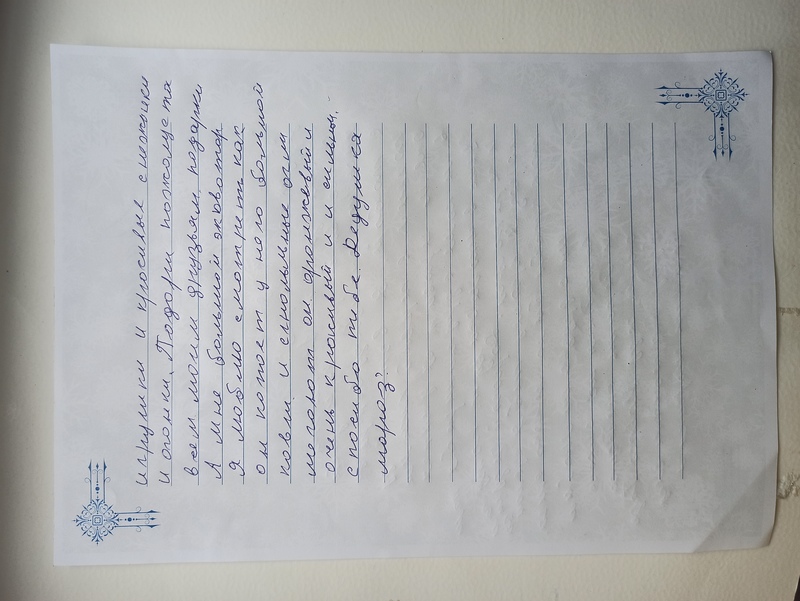 игрушки и красивые снежинки
и огоньки. Подари пожалуста
всем моим друзьям подарки
А мне большой эковатор
Я люблю смотреть как
он копает у него большой
ковш и
он оранжевый и
очень красивый и и сильный.
спосибо тебе Дедушка
мороз!